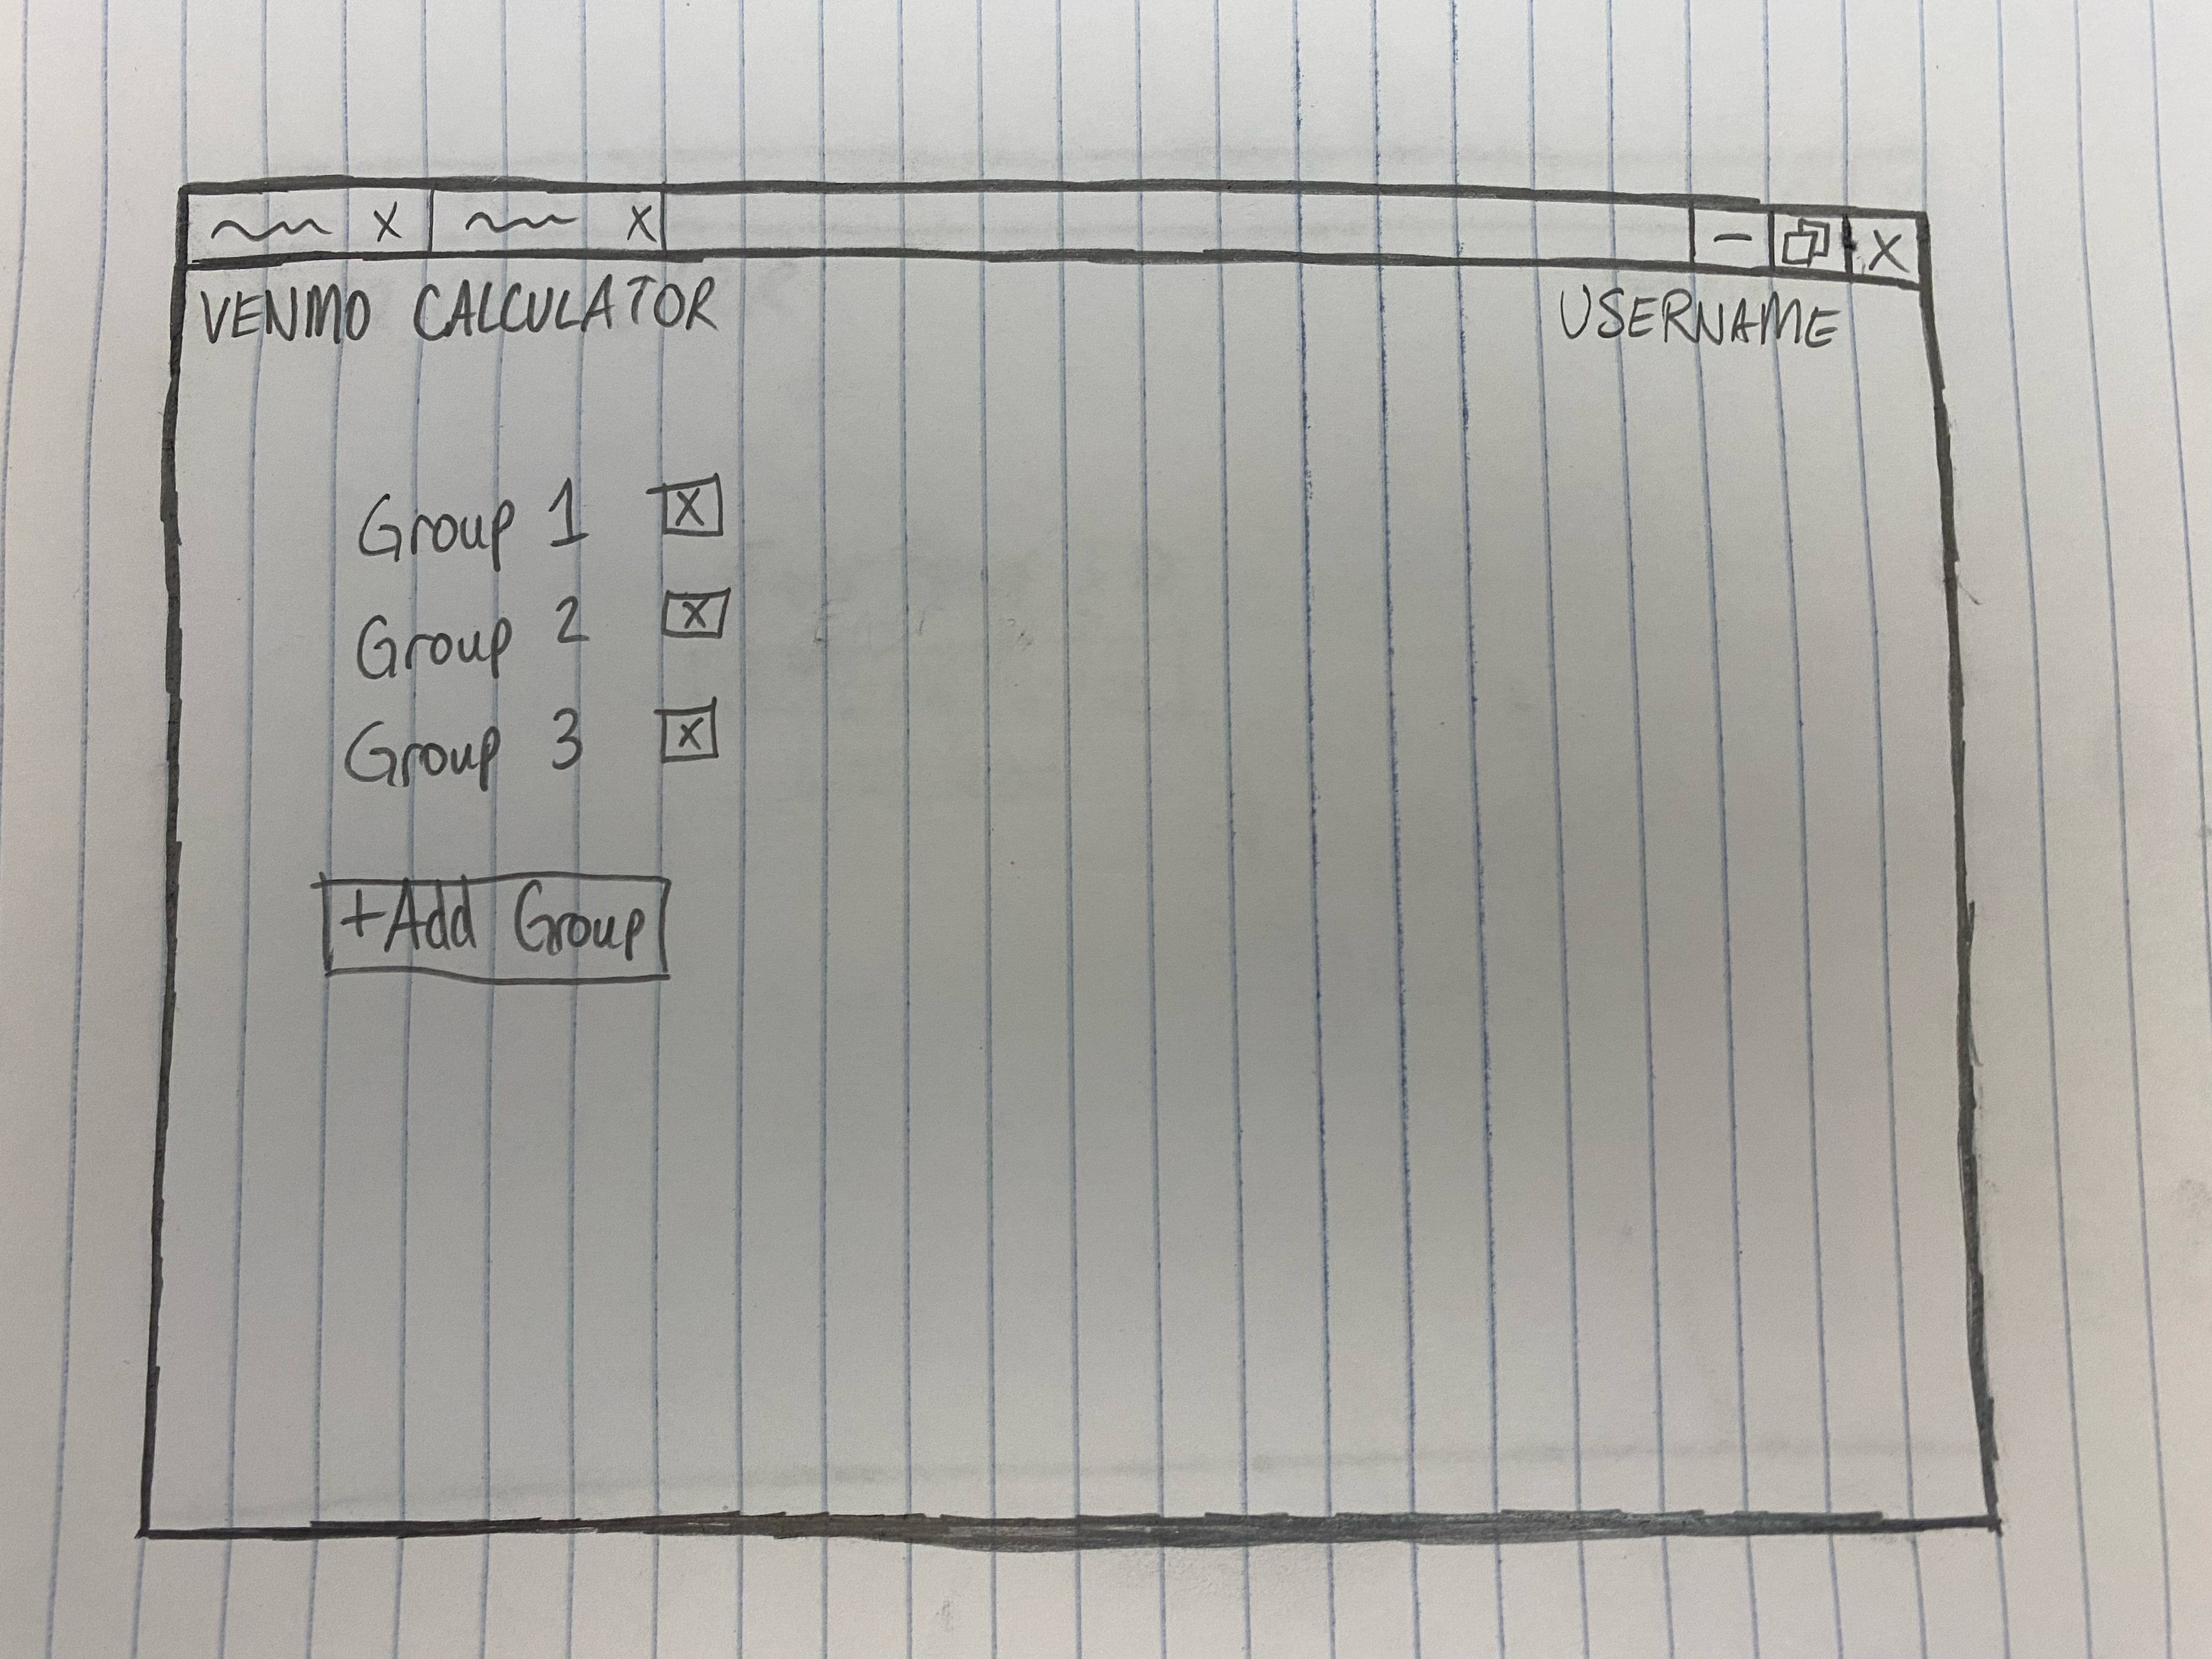 X X - X
VENMO CALCULATOR USERNAME
Group 1 X
Group 2 X
Group 3 X
+Add Group